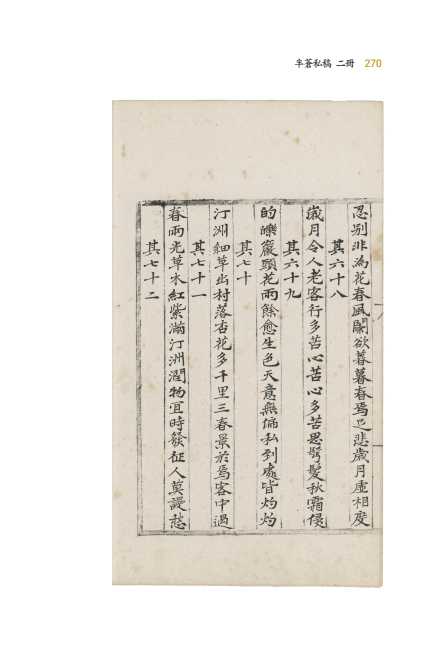 半蒼私稿 二冊 270
忍別非為花春風闌欲暮暮春焉足悲歲月虛相度
其六十八
歲月令人老客行多苦心苦心多苦思鬢髮秋霜侵
其六十九
的皪巖頭花雨餘愈生色天意無偏私到處皆灼灼
其七十
汀洲細草出村落杏花多千里三春景於焉客中過
其七十一
春雨光草木紅紫滿汀洲潤物宜時發征人莫謾愁
其七十二